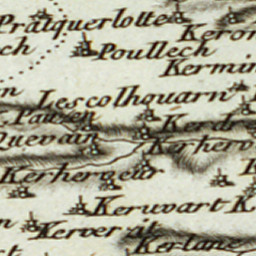 Praiquerlotte
Keron
ch
Poullech
Kermin
Lescolhouarn
Pauzen
Quevain
Kerherv
Kerherveur
Keruvart K
Kerver it
Kerlane